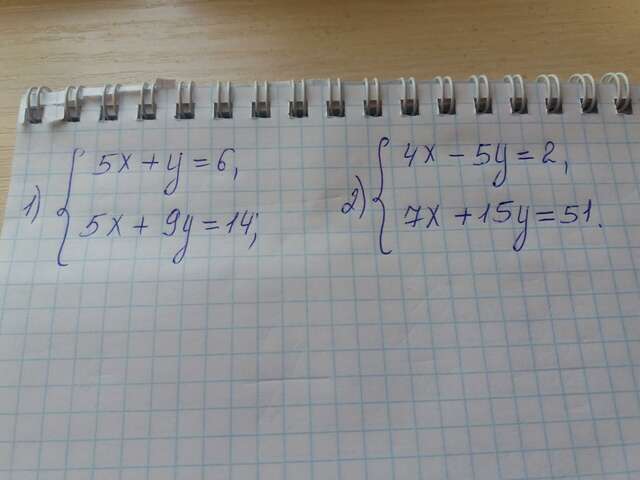 1) { 5x + y = 6,
5x + 9y = 14;
2) { 4x - 5y = 2,
7x + 15y = 51.